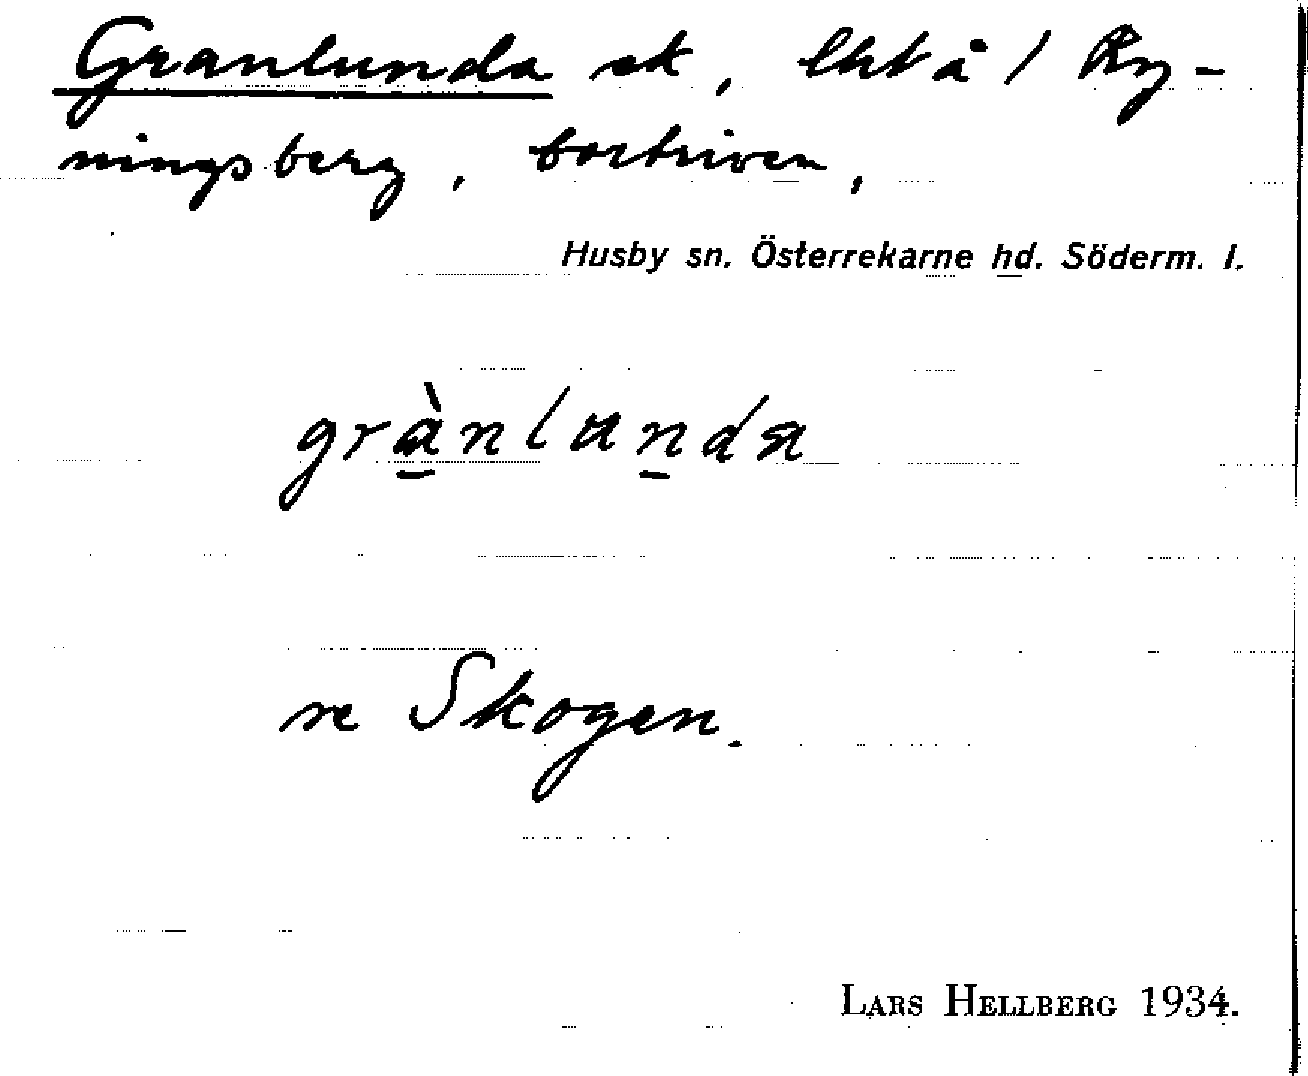 Granlunda st, lht å 1 Ry-
ningsberg, bortriven,
Husby sn. Österrekarne hd. Söderm. l.
grànlunda
se Skogen.
LARS HELLBERG 1934.